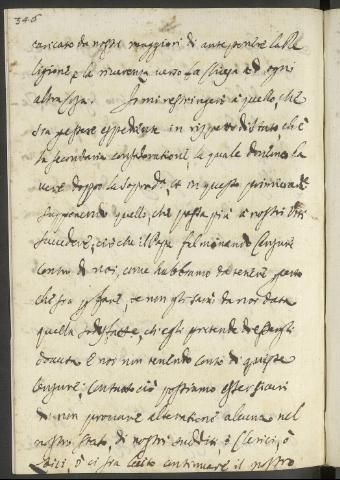 346
caricato da nostri maggiori di anteponere la Re
ligione, e la riverenza verso la Chiesa ad ogni
altra cosa. Io mi restringerò a quello, che
sia per essere espediente in rispetto di stato, ch'è
la secondaria consideratione, la quale devemo ha
vere doppo la sopradª, et in questo primieramᵗᵉ
supponendo quello, che possa più a nostri Stati
succedere, cioè che il Papa fulminando Censure
contro di noi, come habbiamo da tenere per certo
che sia per fare, se non gli sarà da noi data
quella sodisfatte, ch'egli pretende dovergli
dovuta E noi non tenendo conto di queste
Censure; Contuttociò possiamo esser sicuri
di non provare alteratione alcuna nel
nostro stato, di nostri sudditi, ò Clerici, ò
Laici, ò ci sia lecito continuare il nostro